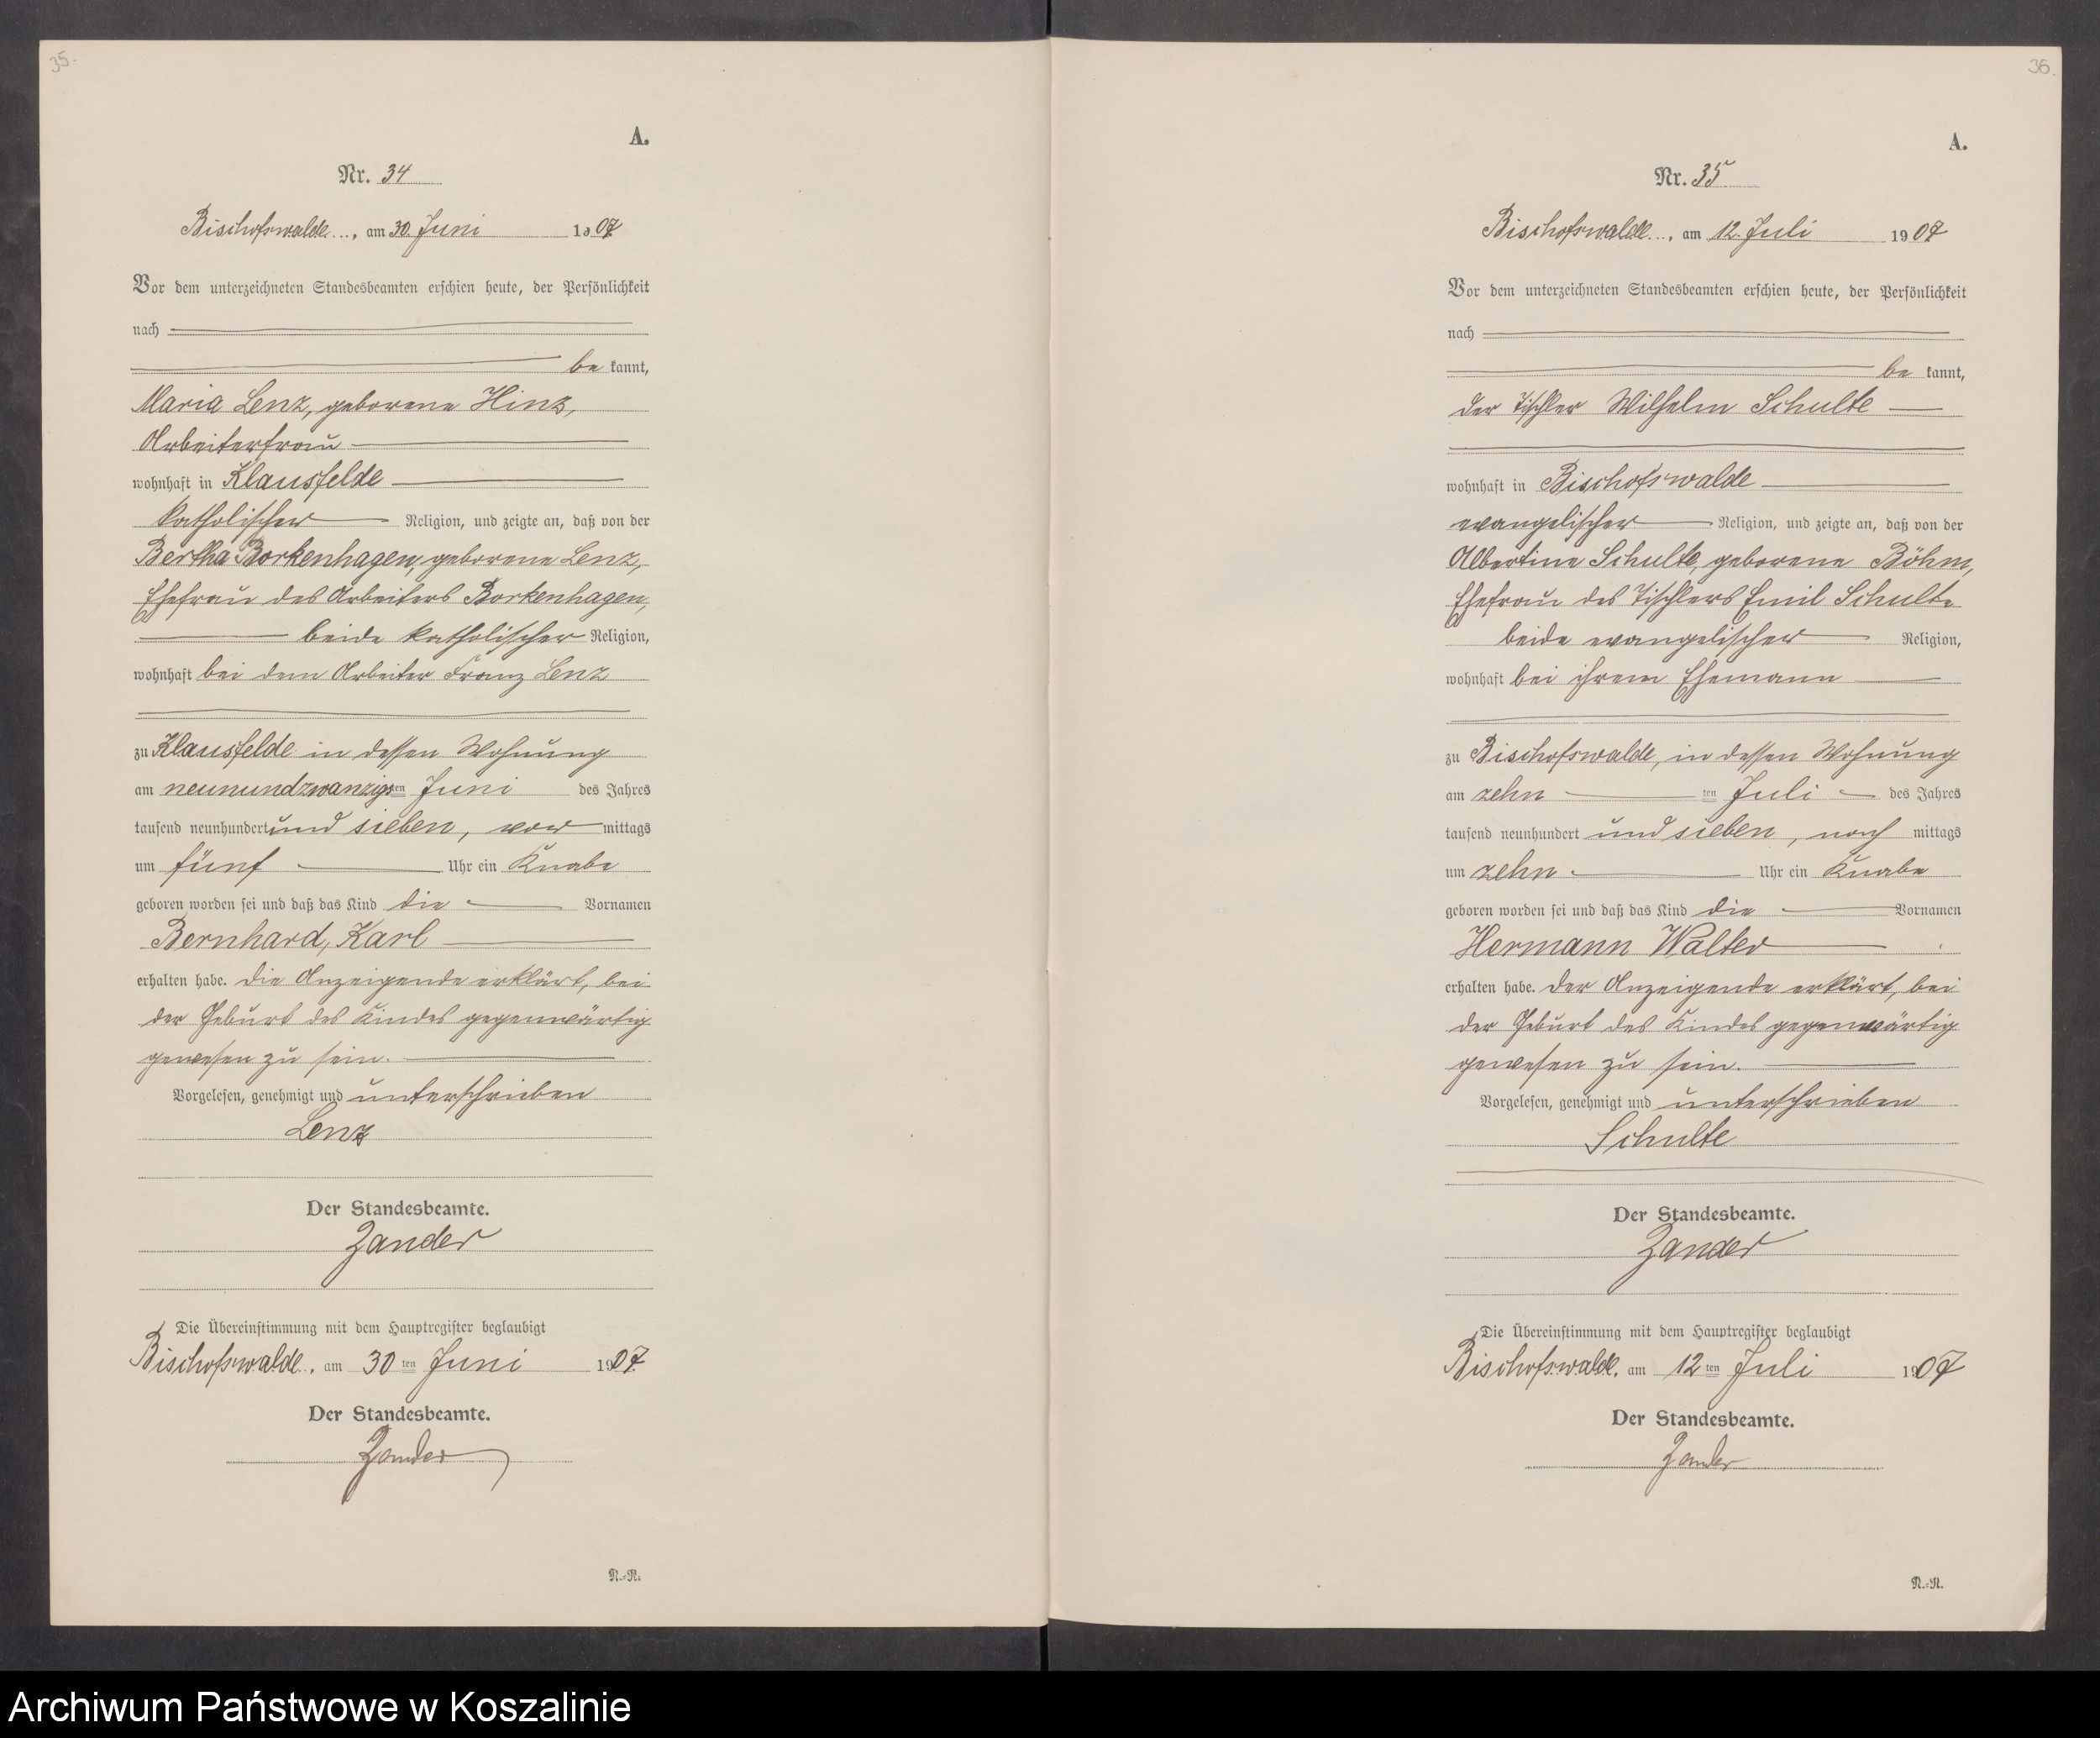 35.
A.
Nr. 34
Bischofswalde, am 30. Juni 1907
Vor dem unterzeichneten Standesbeamten erschien heute, der Persönlichkeit
nach
be kannt,
Maria Lenz, geborene Hinz,
Arbeiterfrau
wohnhaft in Klausfelde
katholischer Religion, und zeigte an, daß von der
Bertha Borkenhagen, geborene Lenz,
Ehefrau des Arbeiters Borkenhagen,
beide katholischer Religion,
wohnhaft bei dem Arbeiter Franz Lenz
zu Klausfelde in dessen Wohnung
am neunundzwanzigsten Juni des Jahres
tausend neunhundert und sieben, vor mittags
um fünf Uhr ein Knabe
geboren worden sei und daß das Kind die Vornamen
Bernhard, Karl
erhalten habe. Die Anzeigende erklärt, bei
der Geburt des Kindes gegenwärtig
gewesen zu sein.
Vorgelesen, genehmigt und unterschrieben
Lenz
Der Standesbeamte.
Zander
Die Übereinstimmung mit dem Hauptregister beglaubigt
Bischofswalde, am 30ten Juni 1907.
Der Standesbeamte.
Zander
N.=R.
36.
A.
Nr. 35
Bischofswalde, am 12. Juli 1907
Vor dem unterzeichneten Standesbeamten erschien heute, der Persönlichkeit
nach
be kannt,
der Tischler Wilhelm Schulte
wohnhaft in Bischofswalde
evangelischer Religion, und zeigte an, daß von der
Albertine Schulte, geborene Böhm,
Ehefrau des Tischlers Emil Schulte
beide evangelischer Religion,
wohnhaft bei ihrem Ehemann
zu Bischofswalde, in dessen Wohnung
am zehn ten Juli des Jahres
tausend neunhundert und sieben, nach mittags
um zehn Uhr ein Knabe
geboren worden sei und daß das Kind die Vornamen
Hermann Walter
erhalten habe. Der Anzeigende erklärt, bei
der Geburt des Kindes gegenwärtig
gewesen zu sein.
Vorgelesen, genehmigt und unterschrieben
Schulte
Der Standesbeamte.
Zander
Die Übereinstimmung mit dem Hauptregister beglaubigt
Bischofswalde, am 12ten Juli 1907
Der Standesbeamte.
Zander
N.=R.
Archiwum Państwowe w Koszalinie